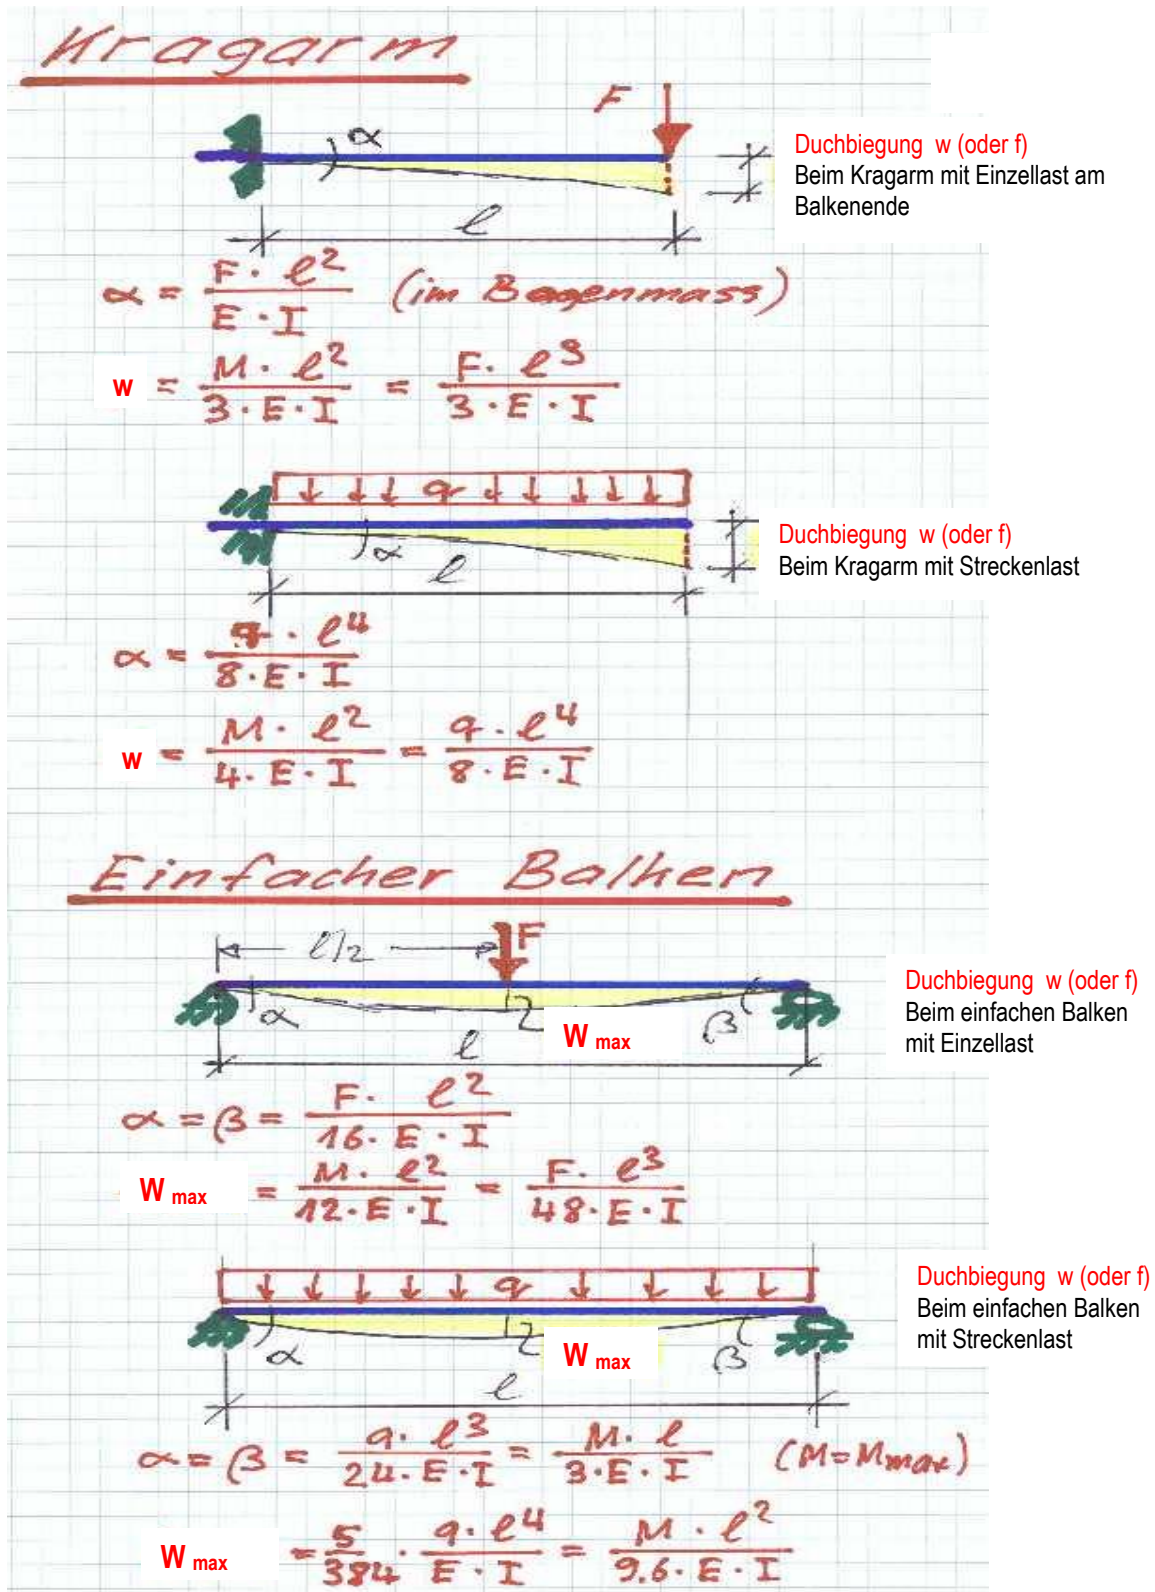 Kragarm
F
α
Duchbiegung w (oder f)
Beim Kragarm mit Einzellast am
Balkenende
l
α = F · l² / E · I (im Bogenmass)
w = M · l² / 3 · E · I = F · l³ / 3 · E · I
q
α
l
Duchbiegung w (oder f)
Beim Kragarm mit Streckenlast
α = q · l⁴ / 8 · E · I
w = M · l² / 4 · E · I = q · l⁴ / 8 · E · I
Einfacher Balken
l/2
F
α
β
W max
l
Duchbiegung w (oder f)
Beim einfachen Balken
mit Einzellast
α = β = F · l² / 16 · E · I
W max = M · l² / 12 · E · I = F · l³ / 48 · E · I
q
α
W max
β
l
Duchbiegung w (oder f)
Beim einfachen Balken
mit Streckenlast
α = β = q · l³ / 24 · E · I = M · l / 3 · E · I (M = Mmax)
W max = 5/384 · q · l⁴ / E · I = M · l² / 9.6 · E · I